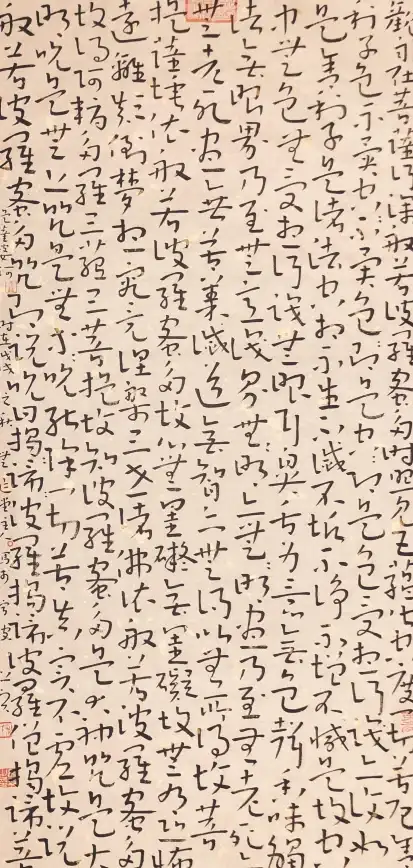 觀自在菩薩行深般若波羅蜜多時照見五蘊皆空度一切苦厄舍
利子色不異空空不異色色即是空空即是色受想行識亦復如
是舍利子是諸法空相不生不滅不垢不淨不增不減是故空
中無色無受想行識無眼耳鼻舌身意無色聲香味觸
法無眼界乃至無意識界無無明亦無無明盡乃至無老死亦
無老死盡無苦集滅道無智亦無得以無所得故菩
提薩埵依般若波羅蜜多故心無罣礙無罣礙故無有恐怖
遠離顛倒夢想究竟涅槃三世諸佛依般若波羅蜜多
故得阿耨多羅三藐三菩提故知般若波羅蜜多是大神咒是大
明咒是無上咒是無等等咒能除一切苦真實不虛故說
般若波羅蜜多咒即說咒曰揭諦揭諦波羅揭諦波羅僧揭諦菩
提薩婆訶 時在戊戌之秋